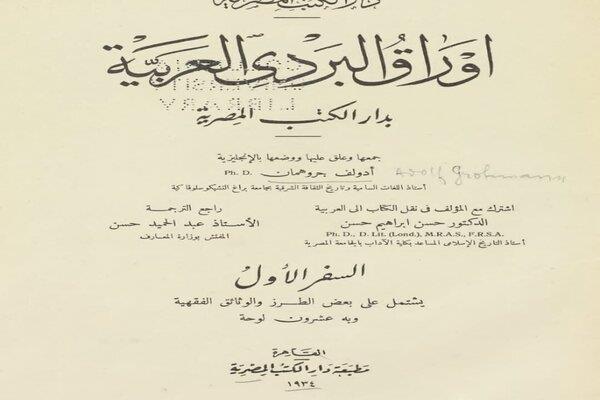 دار الكتب المصرية
اوراق البردي العربية
بدار الكتب المصرية
جمعها وعلق عليها ووضعها بالإنجليزية
أدولف جروهمان Ph. D.
Adolf Grohmann
أستاذ اللغات السامية وتاريخ الثقافة الشرقية بجامعة براغ التشيكوسلوڤاكية
اشترك مع المؤلف فى نقل الكتاب الى العربية
الدكتور حسن ابراهيم حسن
Ph. D., D. Lit. (Lond.), M.R.A.S., F.R.S.A.
أستاذ التاريخ الإسلامى المساعد بكلية الآداب بالجامعة المصرية
راجع الترجمة
الأستاذ عبد الحميد حسن
المفتش بوزارة المعارف
السفر الأول
يشتمل على بعض الطرز والوثائق الفقهية
وبه عشرون لوحة
القاهرة
مطبعة دار الكتب المصرية
١٩٣٤